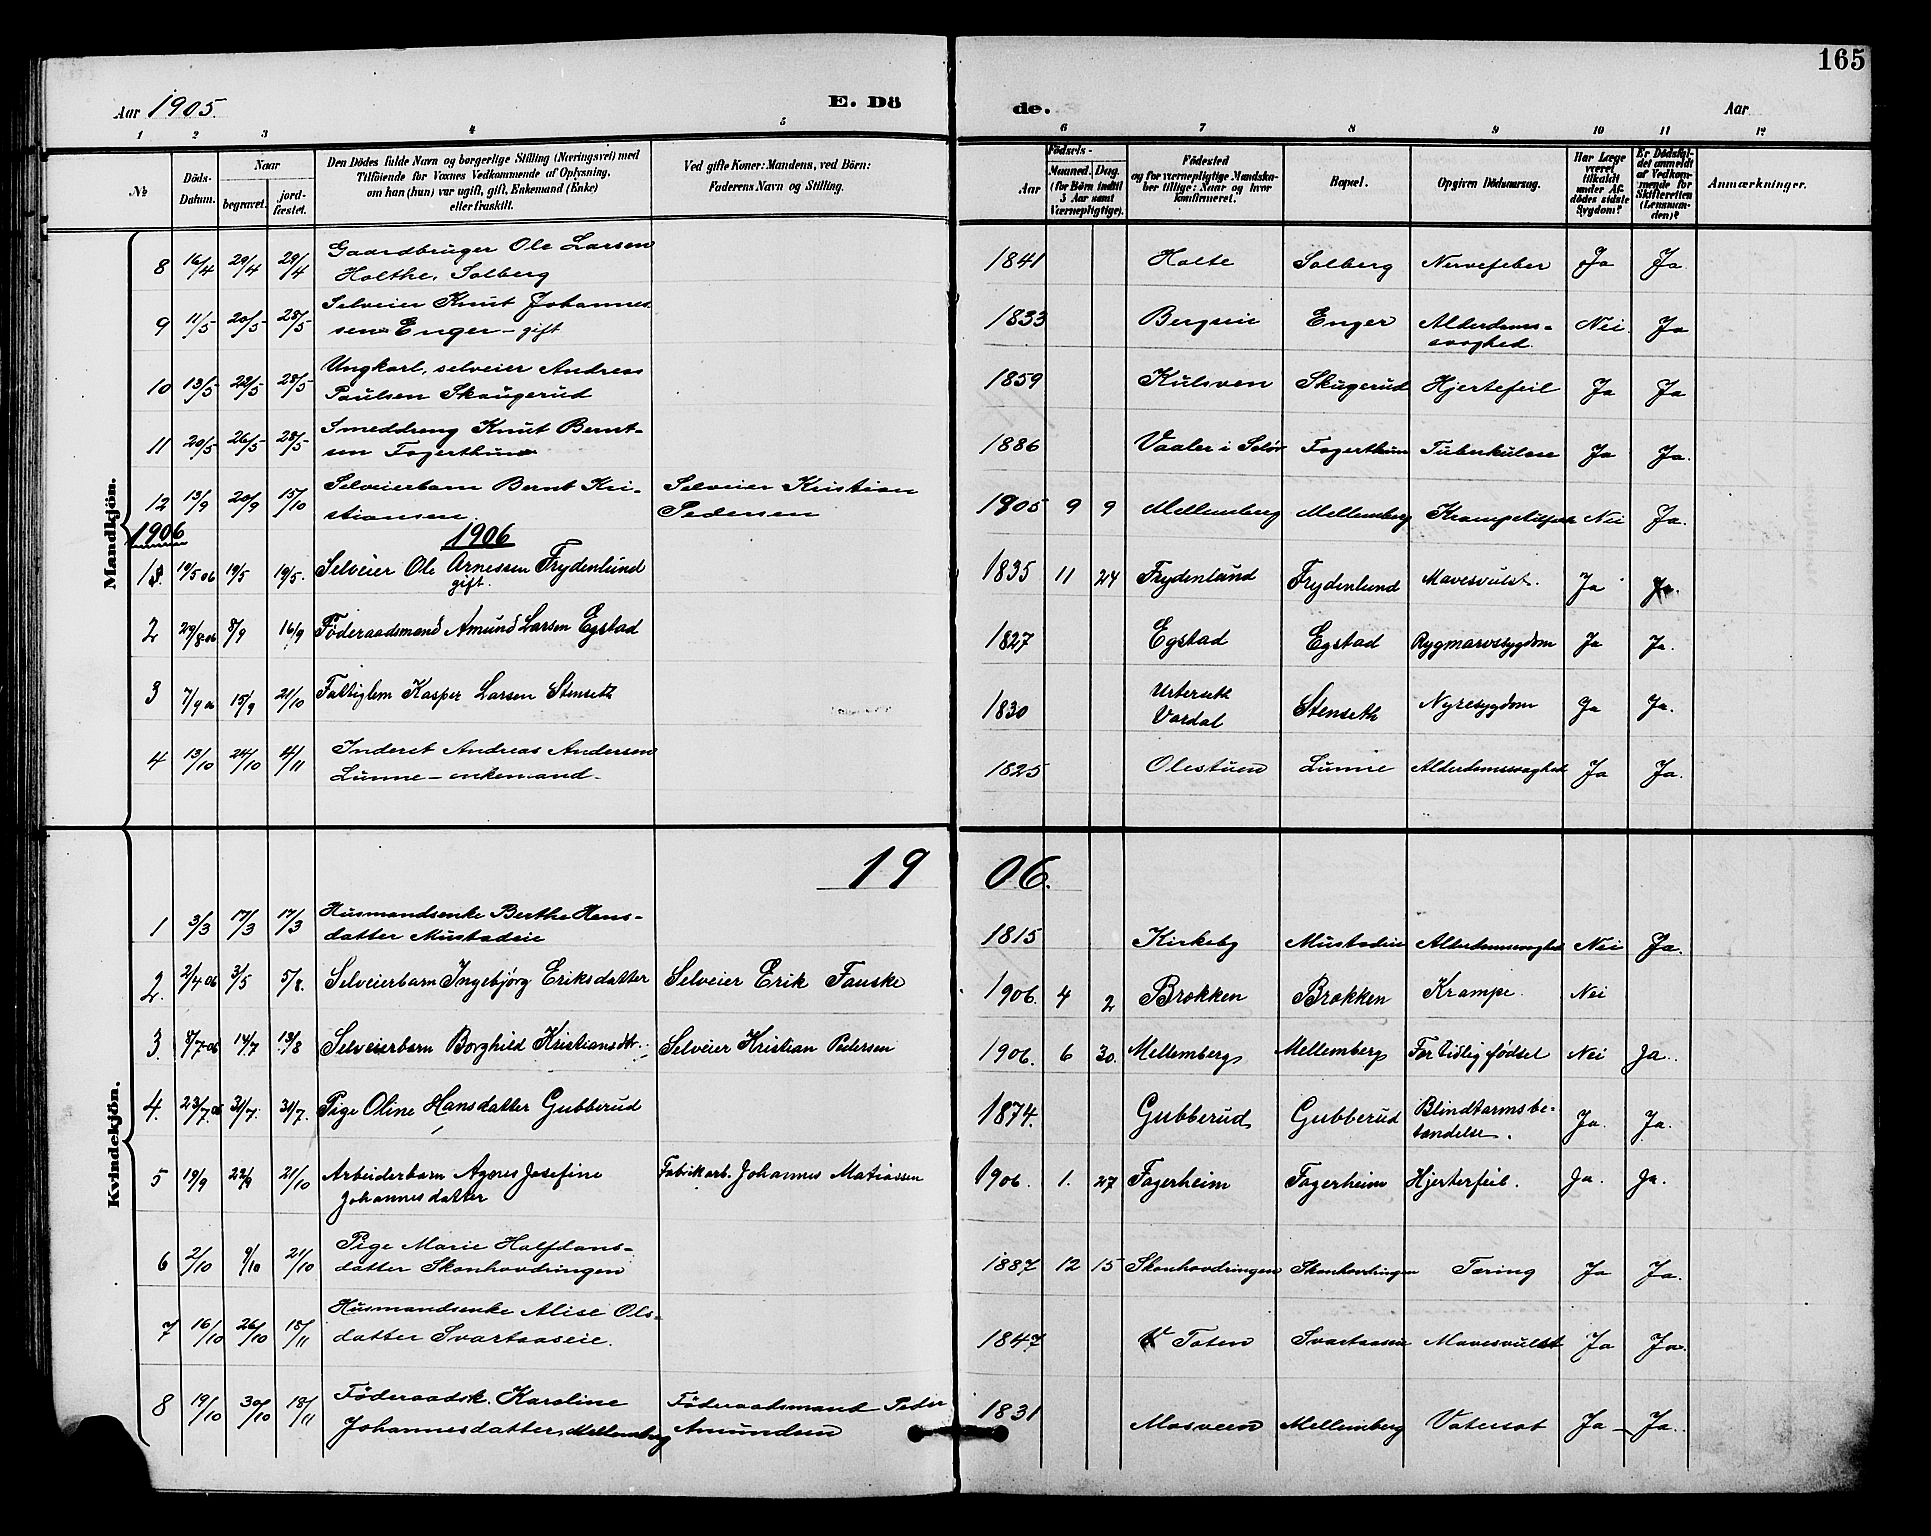 165
Aar 1905.
E. Dö
de.
Aar
1 2 3 4 5 6 7 8 9 10 11 12
№
Döds-Datum.
Naar
begravet. jord-fæstet.
Den Dödes fulde Navn og borgerlige Stilling (Næringsvei) med
Tilföiende for Voxnes Vedkommende af Oplysning,
om han (hun) var ugift, gift, Enkemand (Enke)
eller fraskilt.
Ved gifte Koner: Mandens, ved Börn:
Faderens Navn og Stilling.
Födsels-
Aar
Maaned. Dag.
(for Börn indtil
5 Aar samt
Værnepligtige).
Födested
og for værnepligtige Mandska-
ber tillige: Naar og hvor
konfirmeret.
Bopæl.
Opgiven Dödsaarsag.
Har Læge
været
tilkaldt
under Af-
dödes sidste
Sygdom?
Er Dödsfal-
det anmeldt
af Vedkom-
mende for
Skifteretten
(Lensman-
den)?
Anmærkninger.
Mandkjön.
8 16/4 29/4 29/4 Gaardbruger Ole Larsen
Holthe, Solberg
1841 Holte Solberg Nervefeber Ja Ja
9 11/5 20/5 28/5 Selveier Knut Johannes
sen Enger – gift
1833 Bergseie Enger Alderdoms-
svaghed. Nei Ja
10 13/5 22/5 28/5 Ungkarl, selveier Andreas
Paulsen Skaugerud
1859 Kulsven Skugerud Hjertefeil Ja Ja
11 20/5 26/5 28/5 Smeddreng Knut Bernt-
sen Fagerthun
1886 Vaaler i Solør Fagerthun Tuberkulose Ja Ja.
12 13/9 20/9 15/10 Selveierbarn Bernt Kri-
stiansen.
Selveier Kristian
Pedersen
1905 9 9 Mellemberg Mellemberg Nei Ja.
1906 1906
1. 10/5 06 19/5 19/5. Selveier Ole Arnessen Frydenlund
gift.
1835 11 24 Frydenlund Frydenlund Mavesvulst. Ja Ja.
2 29/8 06 8/9 16/9 Föderaadsmand Amund Larsen Egstad
1827 Egstad Egstad Rygmarvsygdom Ja Ja.
3 7/9 06 15/9 21/10 Fattiglem Kasper Larsen Stenseth
1830 Vardal Stenseth Nyresygdom Ja Ja.
4 13/10 24/10 4/11 Inderst Andreas Andersen
Lunne – enkemand.
1825 Olestuen Lunne Alderdomssvaghed Ja Ja.
19 06.
Kvindekjön.
1 3/3 17/3 17/3 Husmandsenke Berthe Hans-
datter Mustadeie
1815 Kirkeby Mustadeie Alderdomssvaghed Nei Ja.
2. 2/4 06 3/5 5/8. Selveierbarn Ingebjörg Eriksdatter Selveier Erik Fauske
1906. 4 2 Brokken Brokken Krampe. Nei
3. 8/7 06 14/7 13/8 Selveierbarn Borghild Kristiansdtr. Selveier Kristian Pedersen
1906. 6 30. Mellemberg Mellemberg For tidlig fødsel Nei Ja.
4. 23/7 06 31/7. 31/7. Pige Oline Hansdatter Gubberud
1874. Gubberud Gubberud Blindtarmsbe-
tændelse. Ja. Ja.
5 19/9 22/9 21/10 Arbeiderbarn Agnes Josefine
Johannesdatter
Fabrikarb. Johannes Matiassen
1906. 1. 27 Fagerheim Fagerheim Hjerterfeil. Ja. Ja.
6 2/10 9/10 21/10 Pige Marie Halfdans-
datter Skonhovdringen
1887 12 15 Skonhovdringen Skonhovdringen Tæring Ja Ja.
7 16/10 26/10 18/11 Husmandsenke Alise Ols-
datter Svartaaseie.
1847 V Toten Svartaaseie Mavesvulst Ja Ja.
8 19/10 30/10 18/11 Föderaadsk. Karoline
Johannesdatter, Mellemberg
Föderaadsmand Peder
Amundsen
1831 Mosveen Mellemberg Vatersot Ja – Ja.